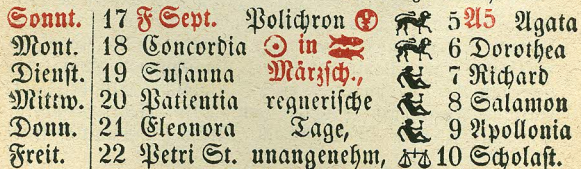 Sonnt. 17 F Sept. Polichron 5 A5 Agata
Mont. 18 Concordia ☉ in ♓ 6 Dorothea
Dienst. 19 Susanna Märzsch., 7 Richard
Mittw. 20 Patientia regnerische 8 Salamon
Donn. 21 Eleonora Tage, 9 Apollonia
Freit. 22 Petri St. unangenehm, ♎ 10 Scholast.